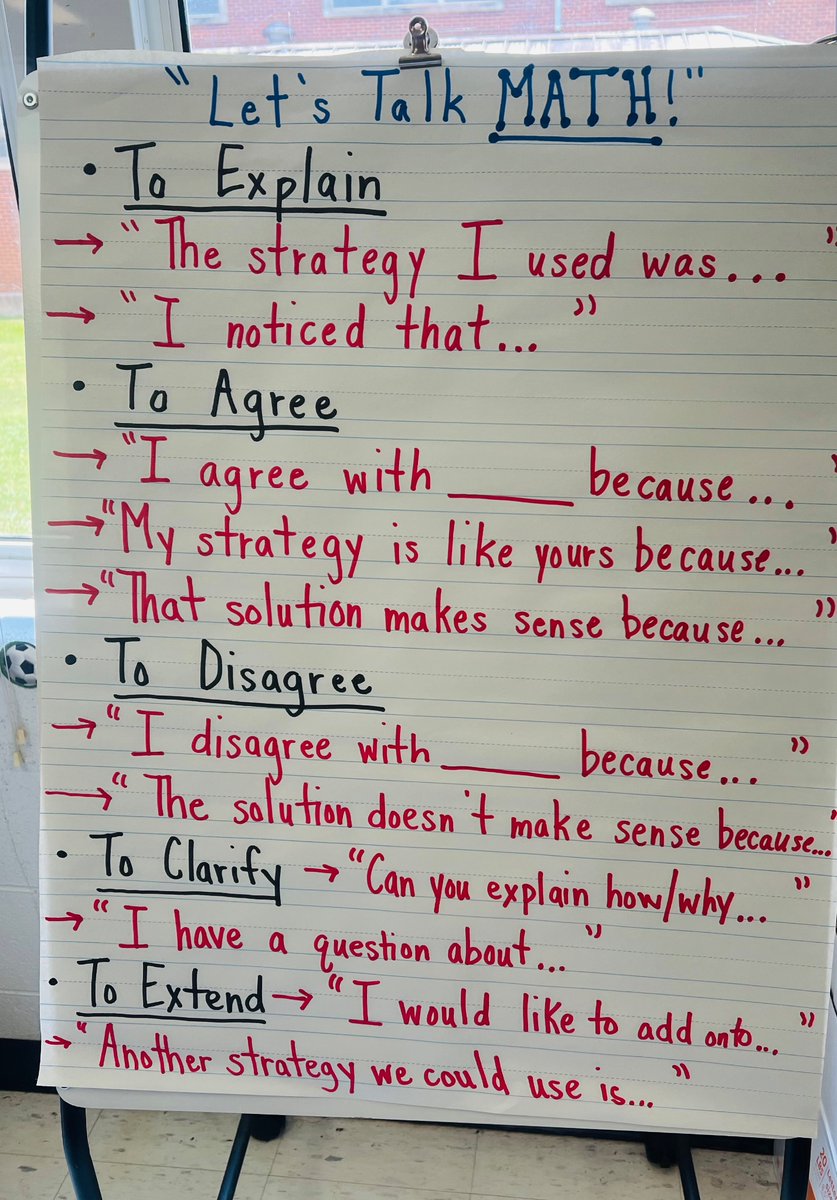 "Let's Talk MATH!"
• To Explain
→ "The strategy I used was..."
→ "I noticed that..."
• To Agree
→ "I agree with ____ because..."
→ "My strategy is like yours because..."
→ "That solution makes sense because..."
• To Disagree
→ "I disagree with ____ because..."
→ "The solution doesn't make sense because..."
• To Clarify → "Can you explain how/why..."
→ "I have a question about..."
• To Extend → "I would like to add onto..."
→ "Another strategy we could use is..."